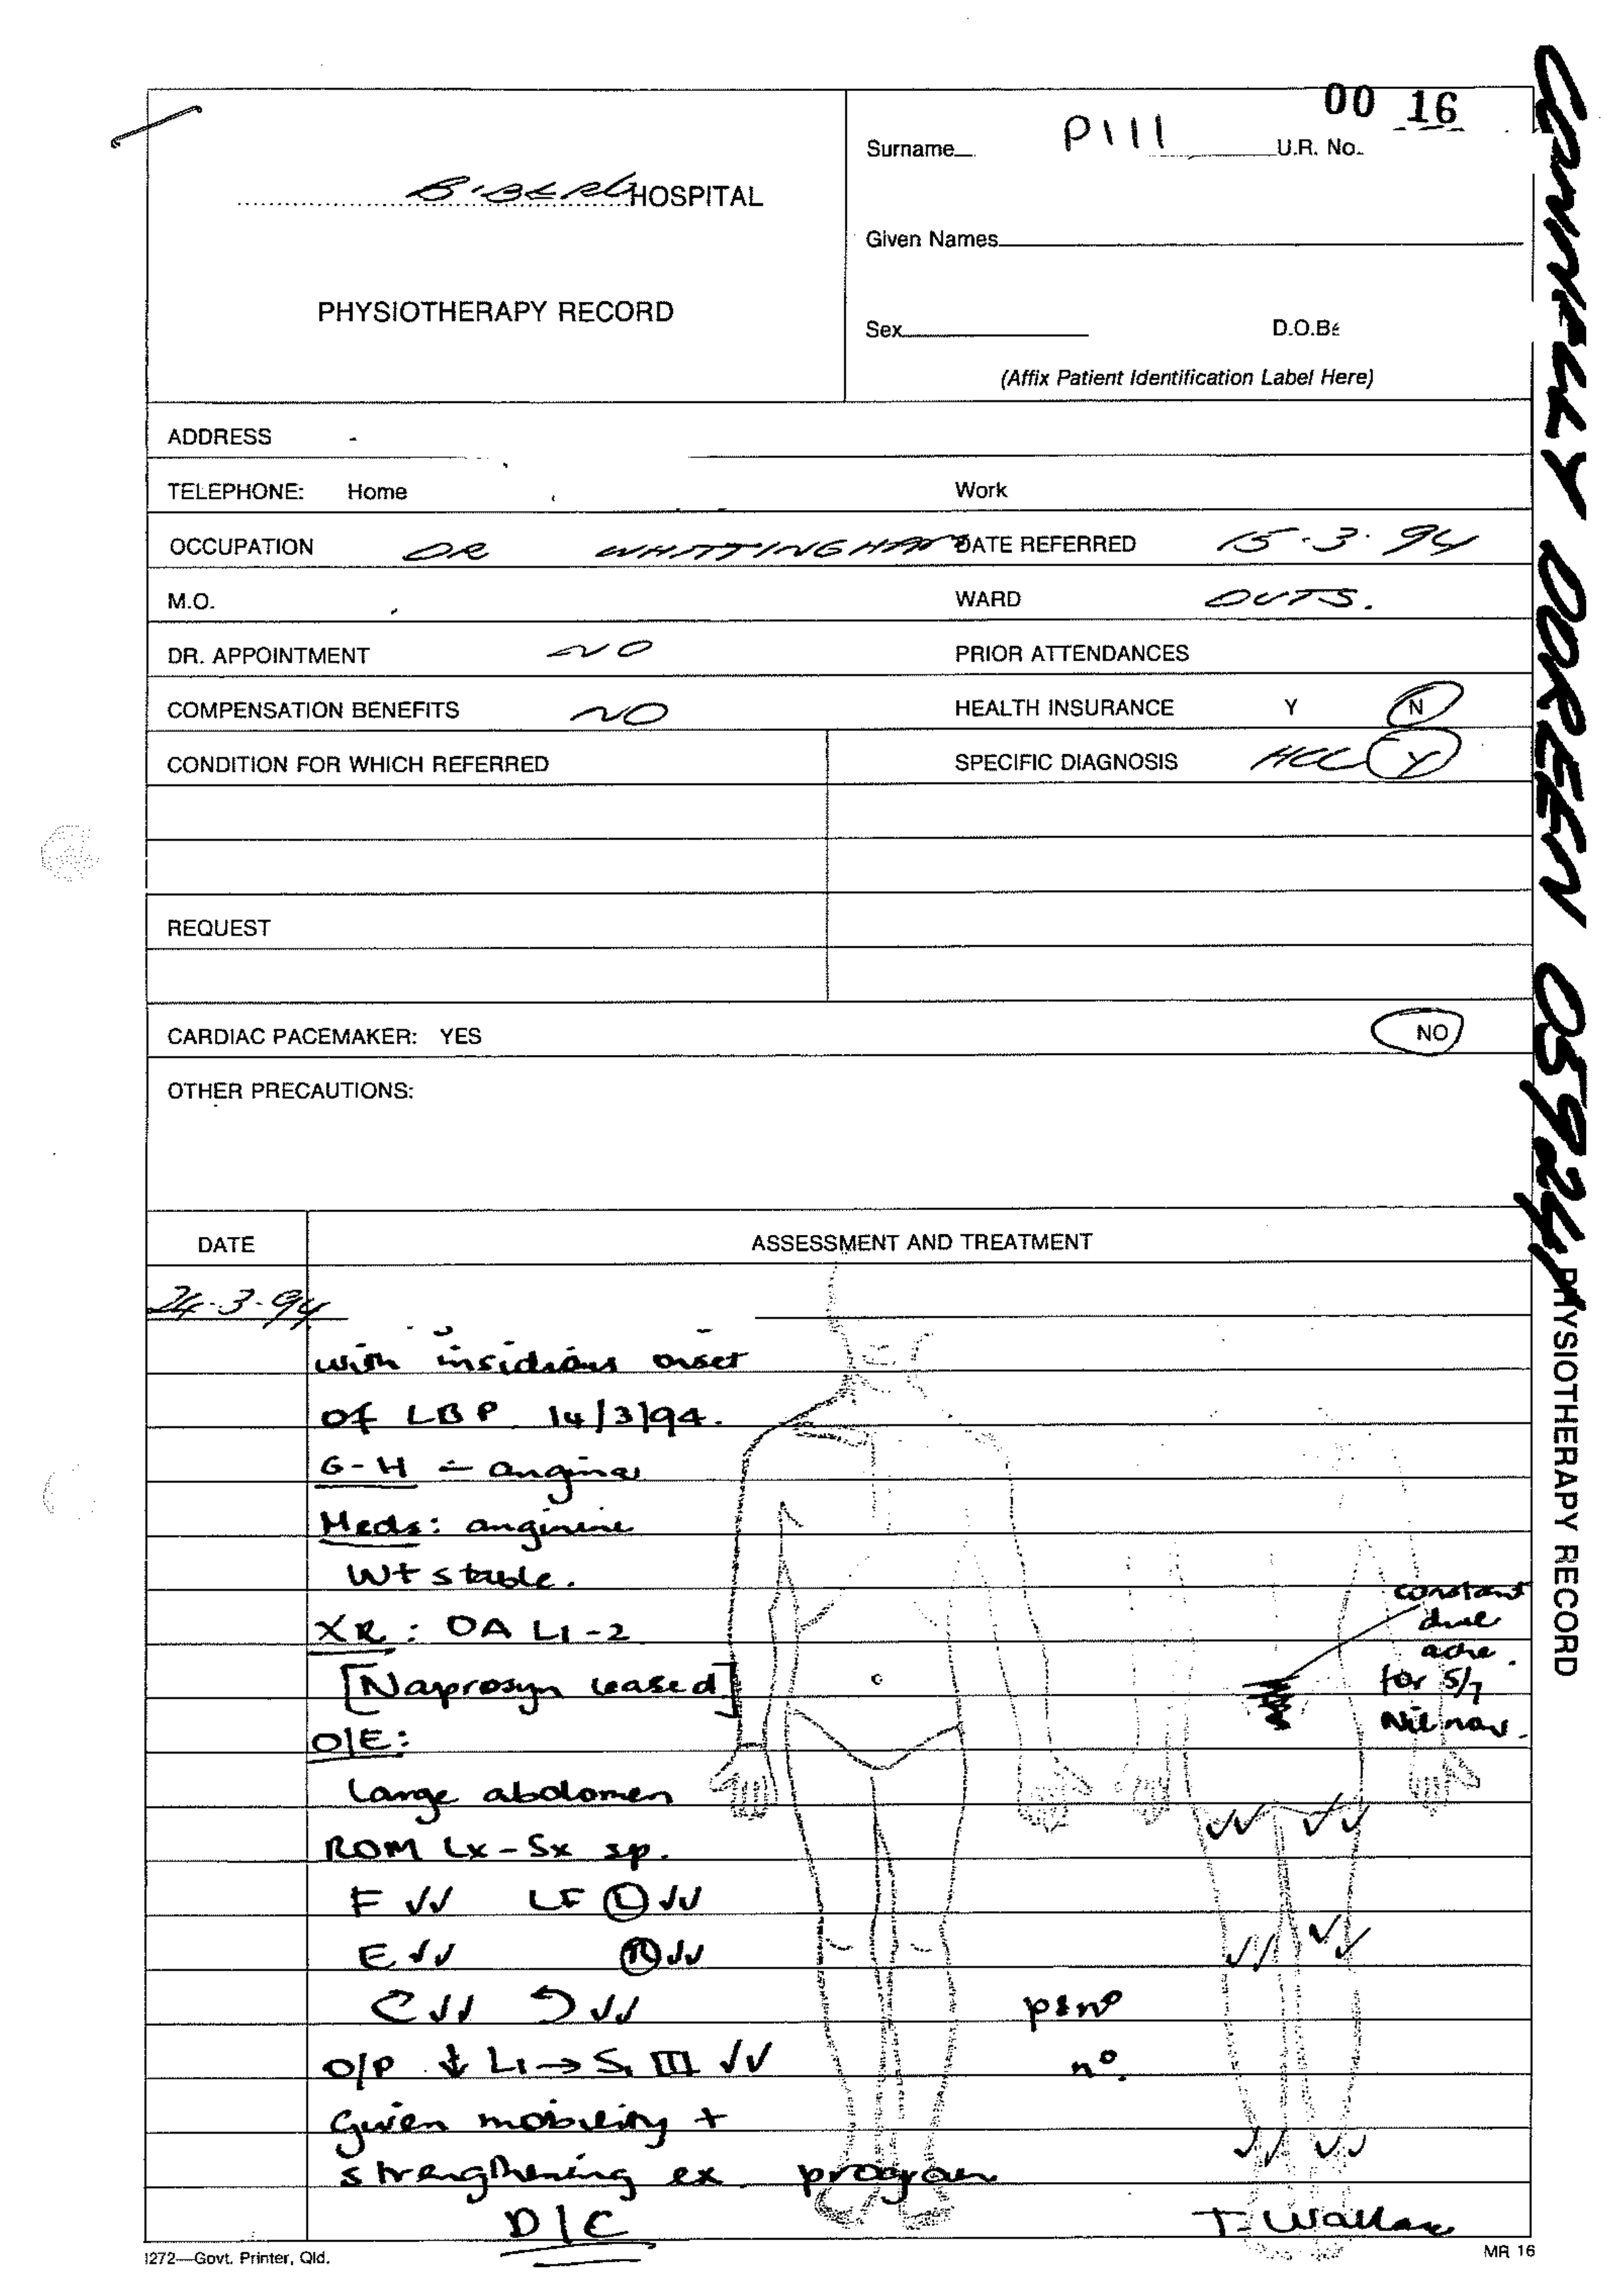 00 16
Surname P111 U.R. No.
B'BERG HOSPITAL
Given Names
PHYSIOTHERAPY RECORD
Sex D.O.B
(Affix Patient Identification Label Here)
ADDRESS
TELEPHONE: Home Work
OCCUPATION DR WHITTINGHAM DATE REFERRED 15.3.94
M.O. WARD OUTS.
DR. APPOINTMENT NO PRIOR ATTENDANCES
COMPENSATION BENEFITS NO HEALTH INSURANCE Y N
CONDITION FOR WHICH REFERRED SPECIFIC DIAGNOSIS HCC Y
REQUEST
CARDIAC PACEMAKER: YES NO
OTHER PRECAUTIONS:
DATE ASSESSMENT AND TREATMENT
24.3.94
with insidious onset
of LBP 14/3/94.
G-H - angina
Meds: anginine
Wt stable.
XR: OA L1-2
[Naprosyn ceased]
O/E:
Large abdomen
ROM Lx-Sx sp.
F ✓✓ LF Ⓛ ✓✓
E ✓✓ Ⓡ ✓✓
✓✓ ✓✓ psnº
O/P ↓ L1→S1 III ✓✓ nº
Given mobility +
strengthening ex program
D/C T. Wallace
constant
dull
ache.
for 5/7
Nil now.
1272—Govt. Printer, Qld. MR 16
DOREEN
PHYSIOTHERAPY RECORD